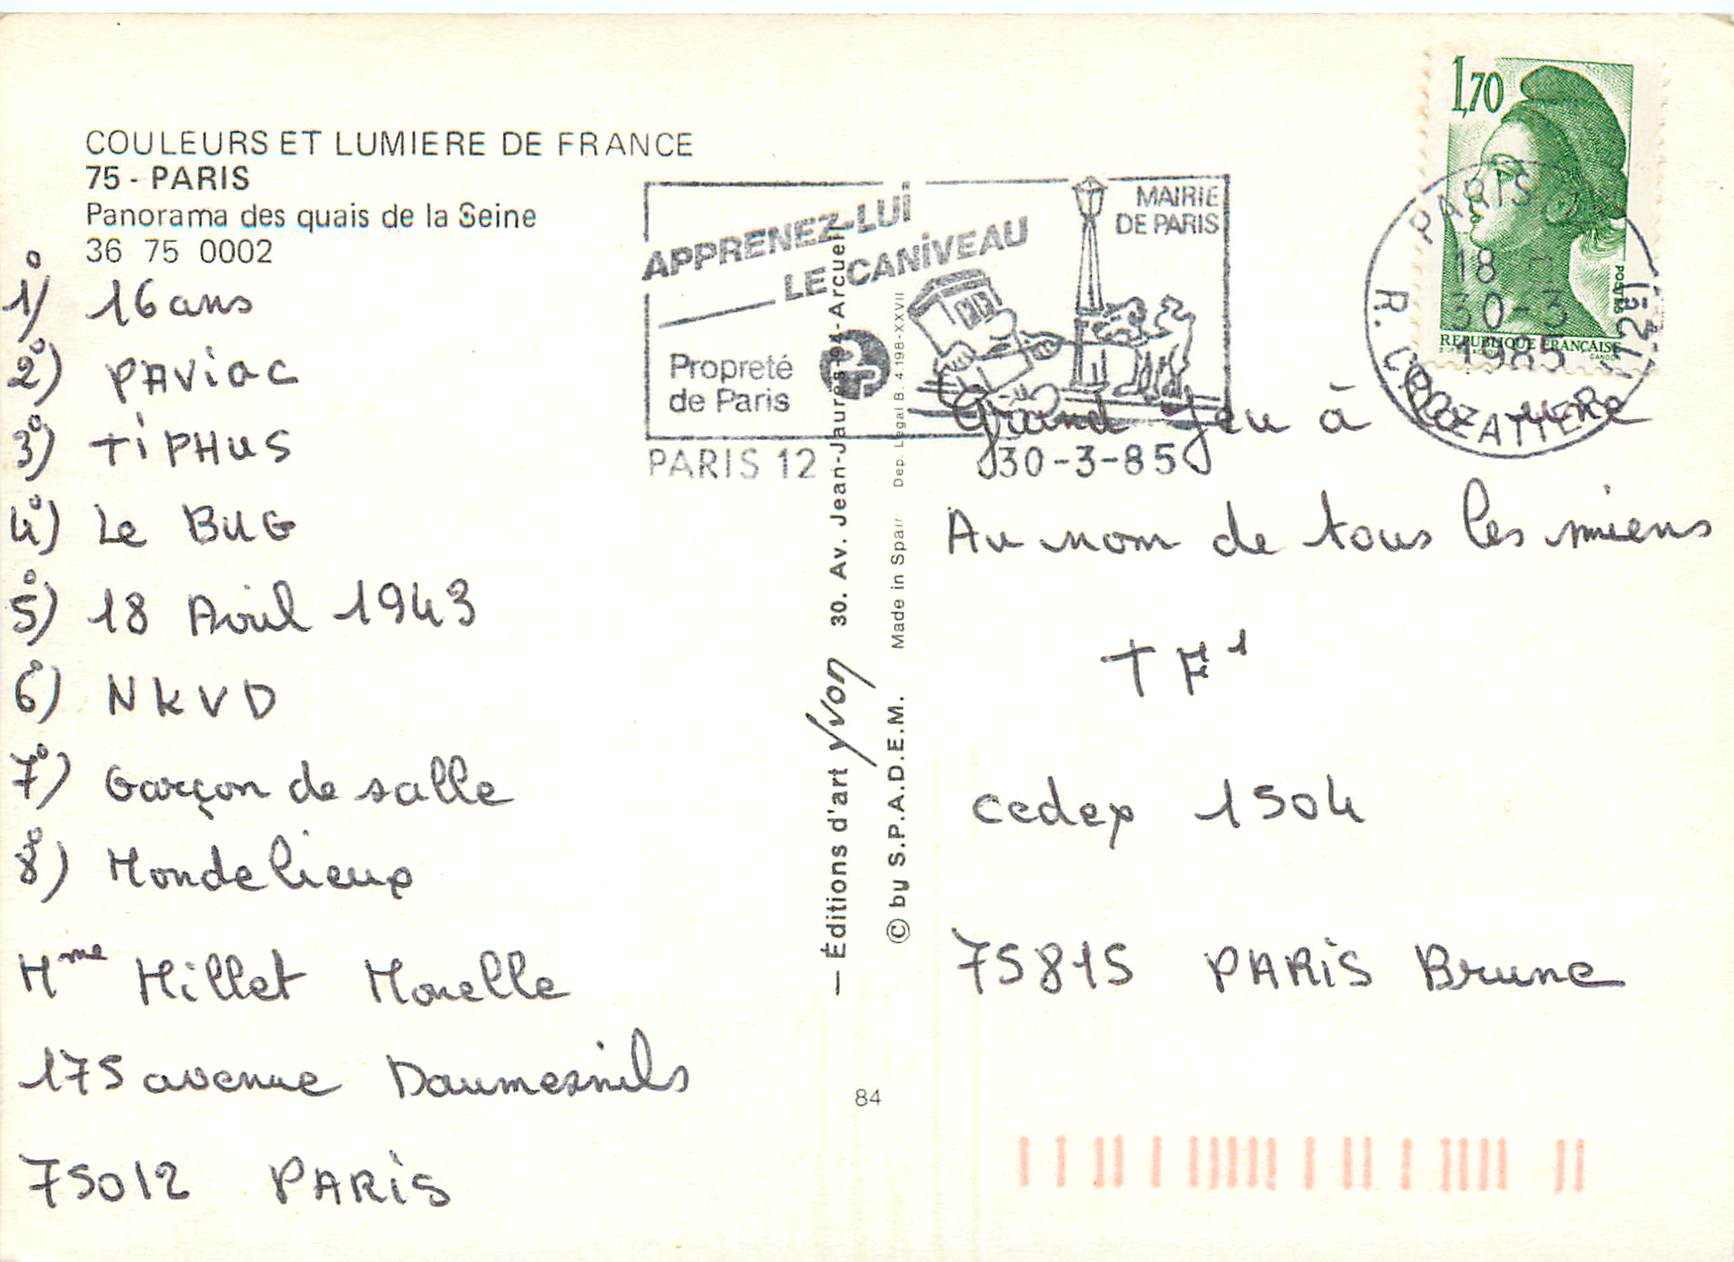 COULEURS ET LUMIERE DE FRANCE
75 - PARIS
Panorama des quais de la Seine
36 75 0002
1°) 16 ans
2°) PAViac
3°) TiPHUS
4°) Le BUG
5°) 18 Avril 1943
6°) NKVD
7°) Garçon de salle
8°) Mondelieup
Mme Millet
175 avenue Daumesnils
75012 PARiS
APPRENEZ-LUI
LE CANIVEAU
MAIRIE
DE PARIS
Propreté
de Paris
PARIS 12
30-3-85
— Éditions d'art Yvon 30. Av. Jean-Jaurès 94-Arcueil
© by S.P.A.D.E.M. Made in Spain Dep. Legal B. 4.198-XXVII
84
1,70
POSTES
REPUBLIQUE FRANÇAISE
GANDON
PARIS
18 H
30-3
1985
R. CROZATIER (12E)
Grand Jeu à
Au nom de tous les miens
TF1
cedex 1504
75815 PARiS Brune